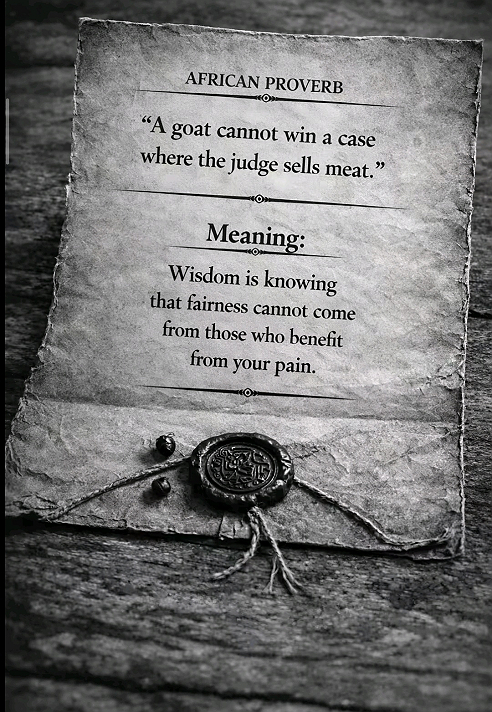 AFRICAN PROVERB
“A goat cannot win a case
where the judge sells meat.”
Meaning:
Wisdom is knowing
that fairness cannot come
from those who benefit
from your pain.